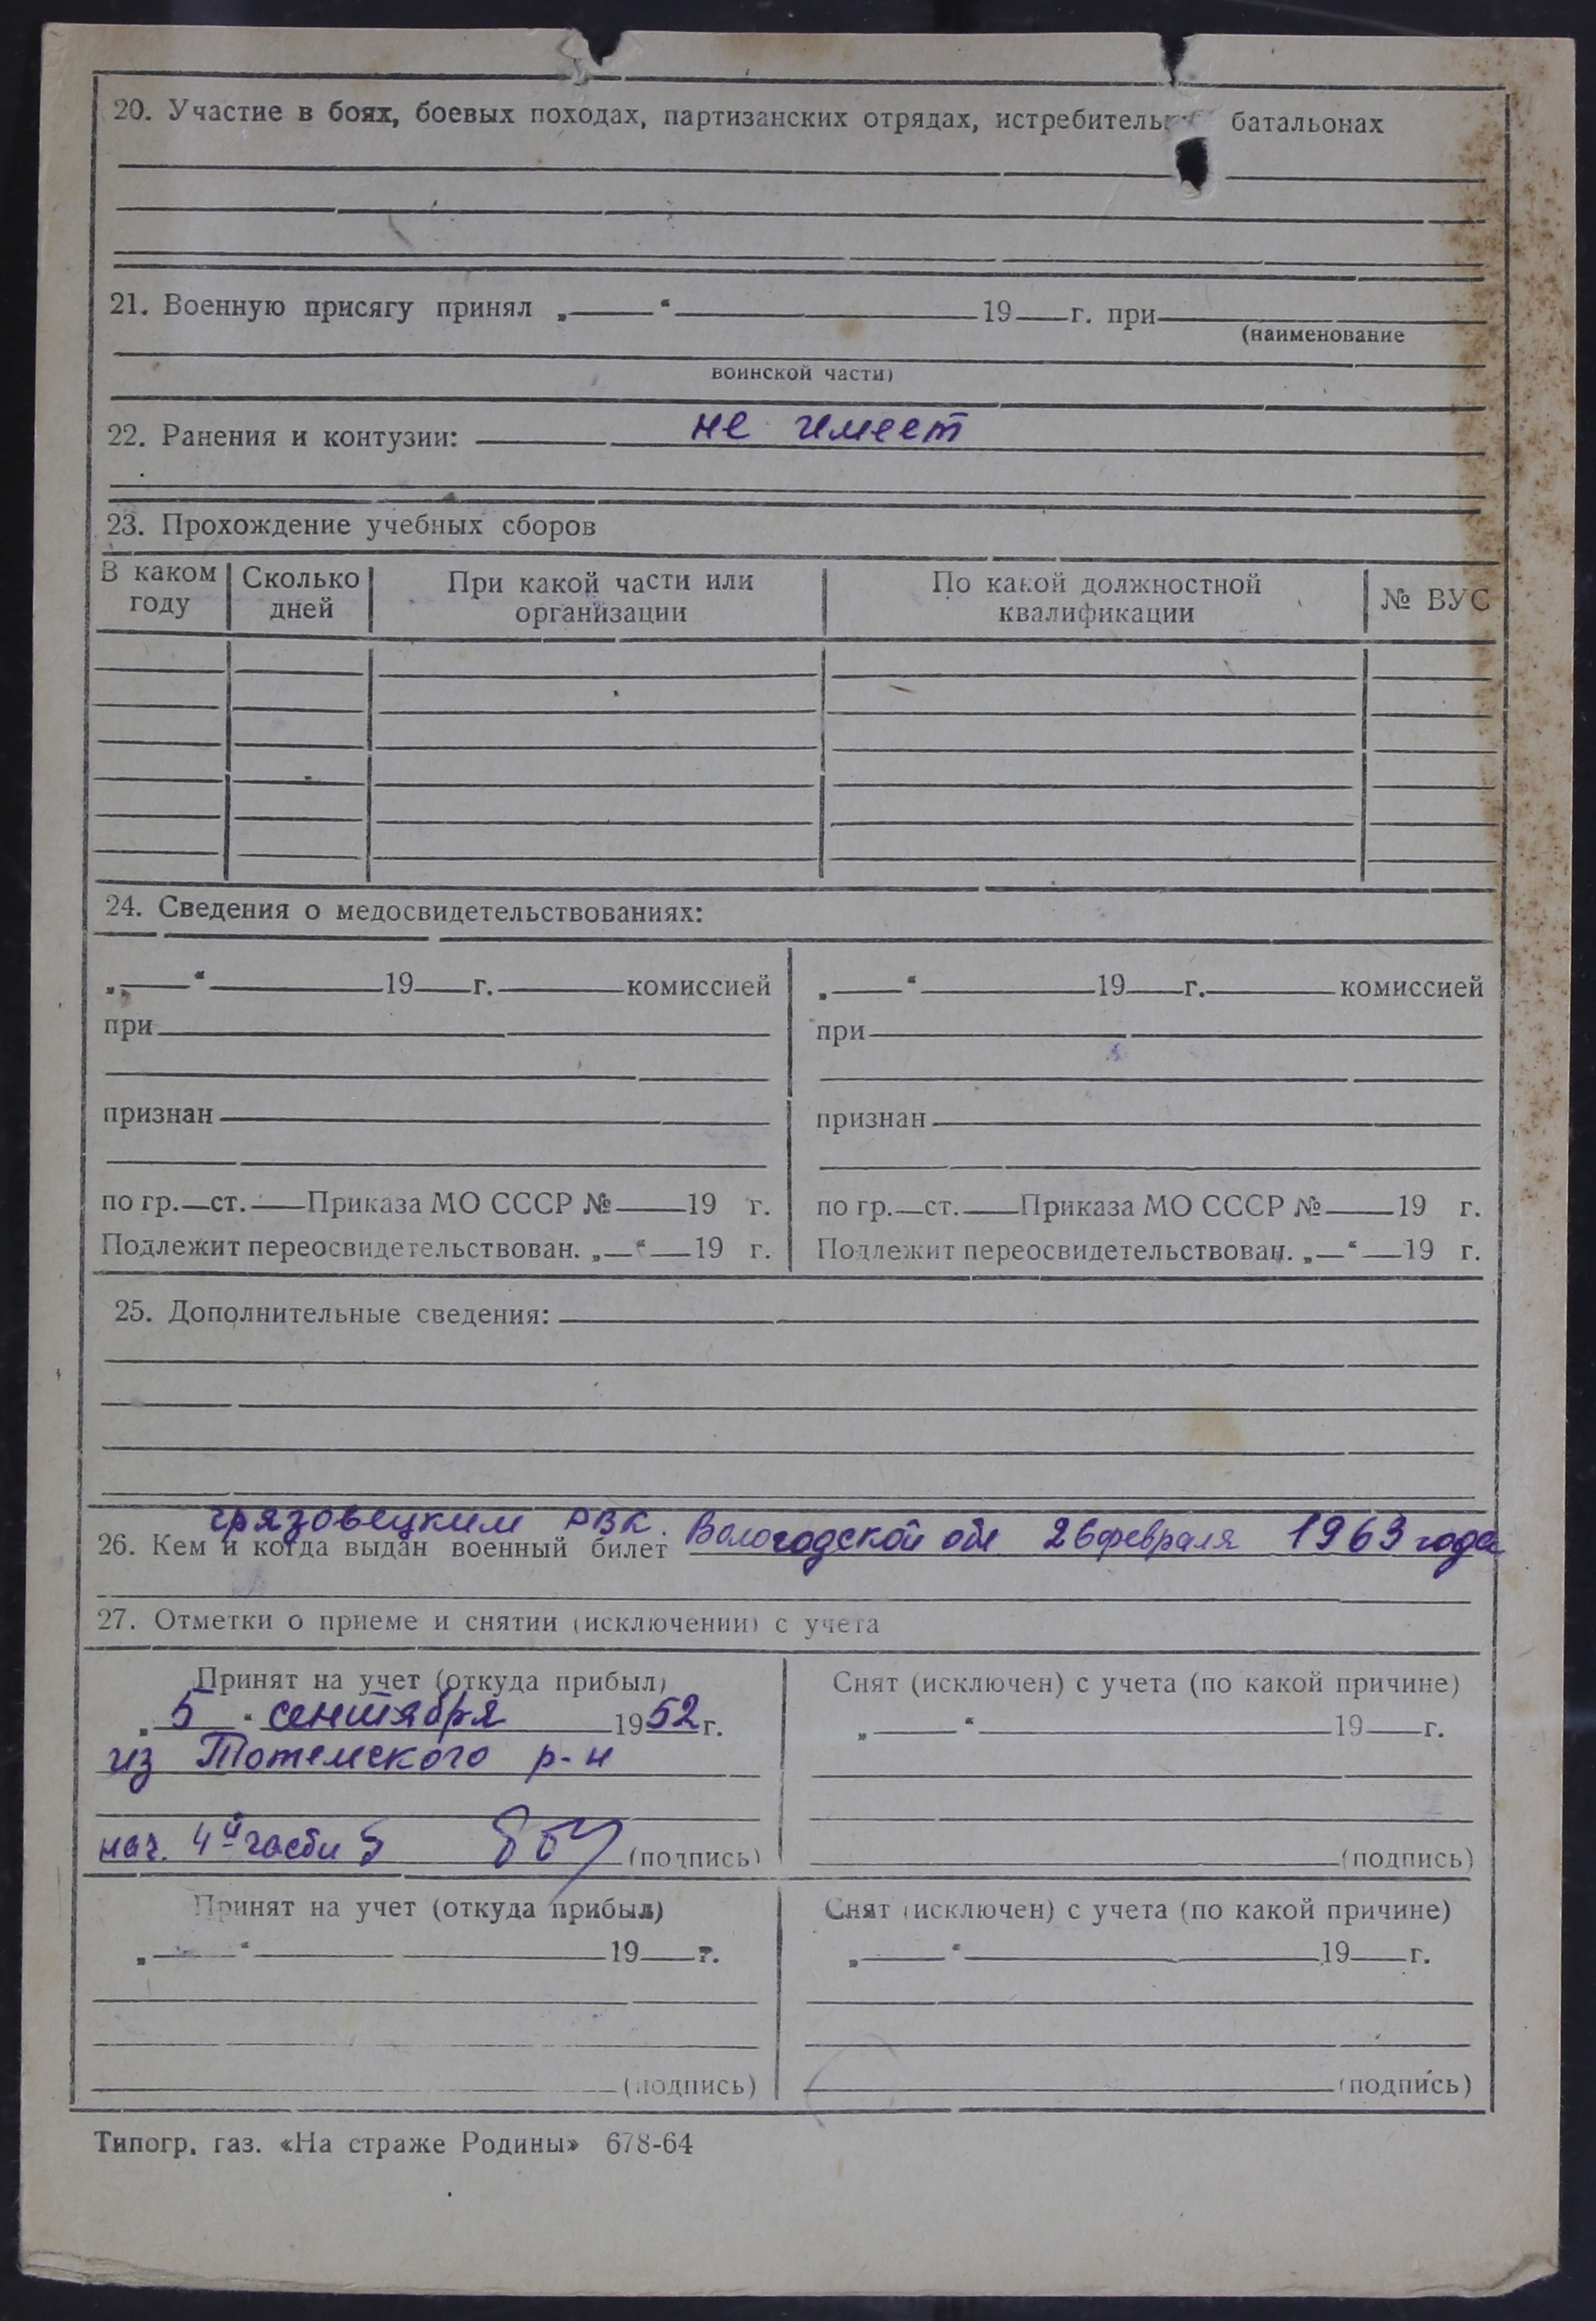 20. Участие в боях, боевых походах, партизанских отрядах, истребитель батальонах
21. Военную присягу принял „ “ 19 г. при
(наименование
воинской части)
22. Ранения и контузии: не имеет
23. Прохождение учебных сборов
В каком году Сколько дней При какой части или организации По какой должностной квалификации № ВУС
24. Сведения о медосвидетельствованиях:
„ “ 19 г. комиссией
при
признан
по гр. ст. Приказа МО СССР № 19 г.
Подлежит переосвидетельствован. „ “ 19 г.
„ “ 19 г. комиссией
при
признан
по гр. ст. Приказа МО СССР № 19 г.
Подлежит переосвидетельствован. „ “ 19 г.
25. Дополнительные сведения:
грязовецким РВК.
26. Кем и когда выдан военный билет Вологодской обл 26 февраля 1963 года
27. Отметки о приеме и снятии (исключении) с учета
Принят на учет (откуда прибыл)
„ 5 “ сентября 1952 г.
из Тотемского р-н
нач. 4й части (подпись)
Снят (исключен) с учета (по какой причине)
„ “ 19 г.
(подпись)
Принят на учет (откуда прибыл)
„ “ 19 г.
(подпись)
Снят (исключен) с учета (по какой причине)
„ “ 19 г.
(подпись)
Типогр. газ. «На страже Родины» 678-64